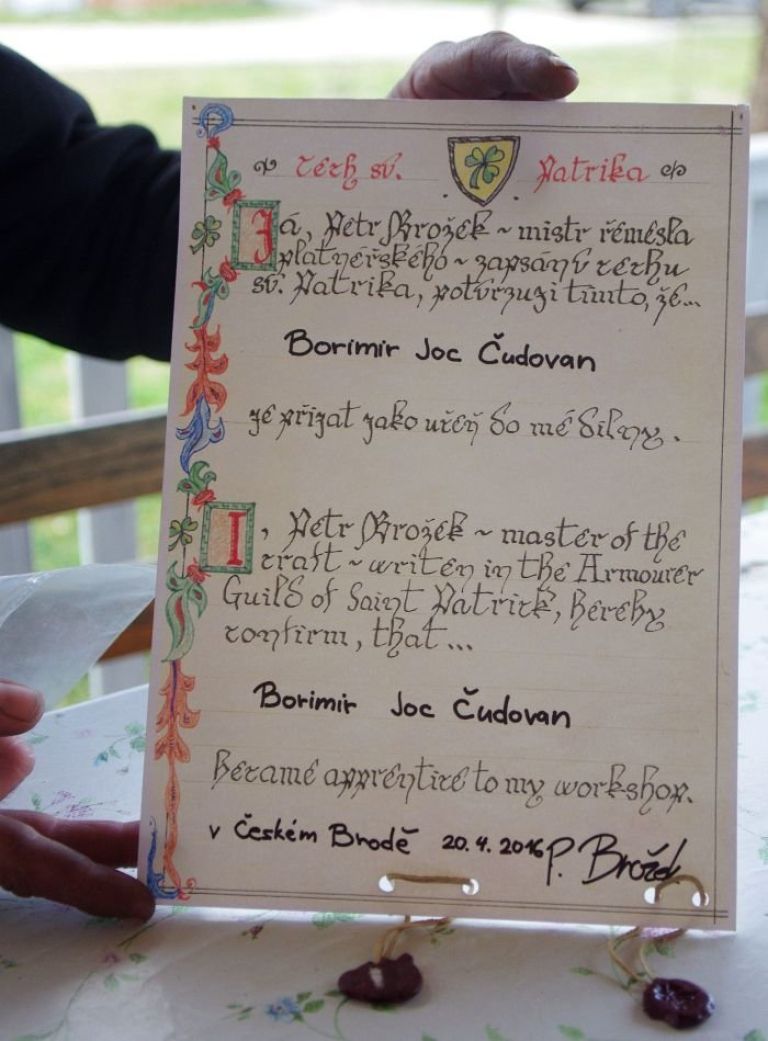 cech sv. Patrika
Já, Petr Brožek ~ mistr řemesla
platnéřského ~ zapsán v cechu
sv. Patrika, potvrzuji tímto, že...
Borimir Joc Čudovan
je přijat jako učeň do mé dílny.
I, Petr Brožek ~ master of the
craft ~ writen in the Armourer
Guild of Saint Patrick, hereby
confirm, that...
Borimir Joc Čudovan
became apprentice to my workshop.
v Českém Brodě 20. 4. 2016 P. Brožek